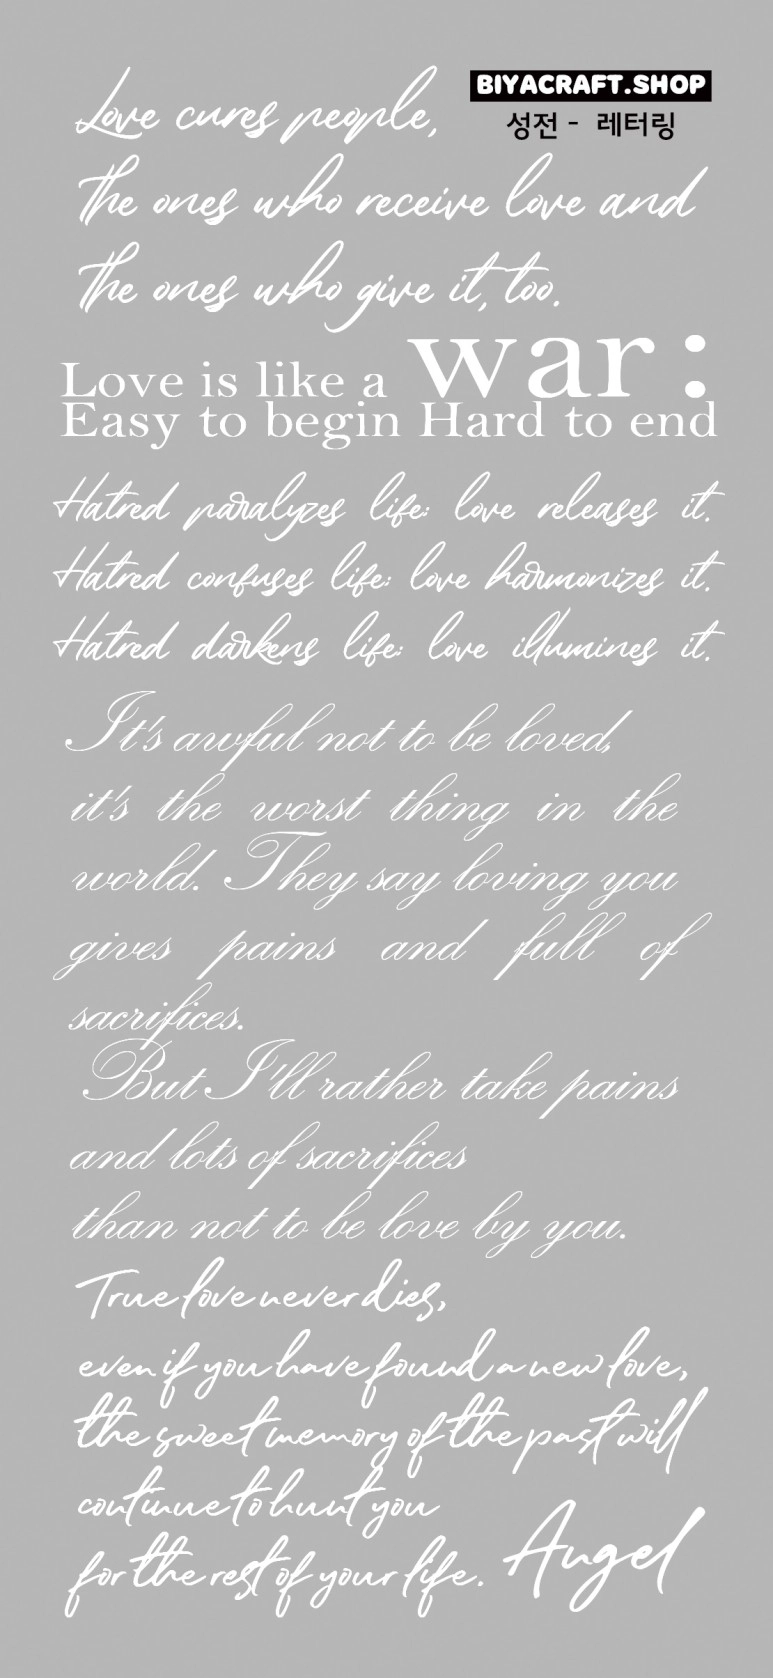 Love cures people,
BIYACRAFT.SHOP
성전 - 레터링
The ones who receive love and
The ones who give it, too.
Love is like a war:
Easy to begin Hard to end
Hatred paralyzes life: love releases it.
Hatred confuses life: love harmonizes it.
Hatred darkens life: love illumines it.
It's awful not to be loved,
it's the worst thing in the
world. They say loving you
gives pains and full of
sacrifices.
But I'll rather take pains
and lots of sacrifices
than not to be love by you.
True love never dies,
even if you have found a new love,
the sweet memory of the past will
continue to hunt you
for the rest of your life.
Angel